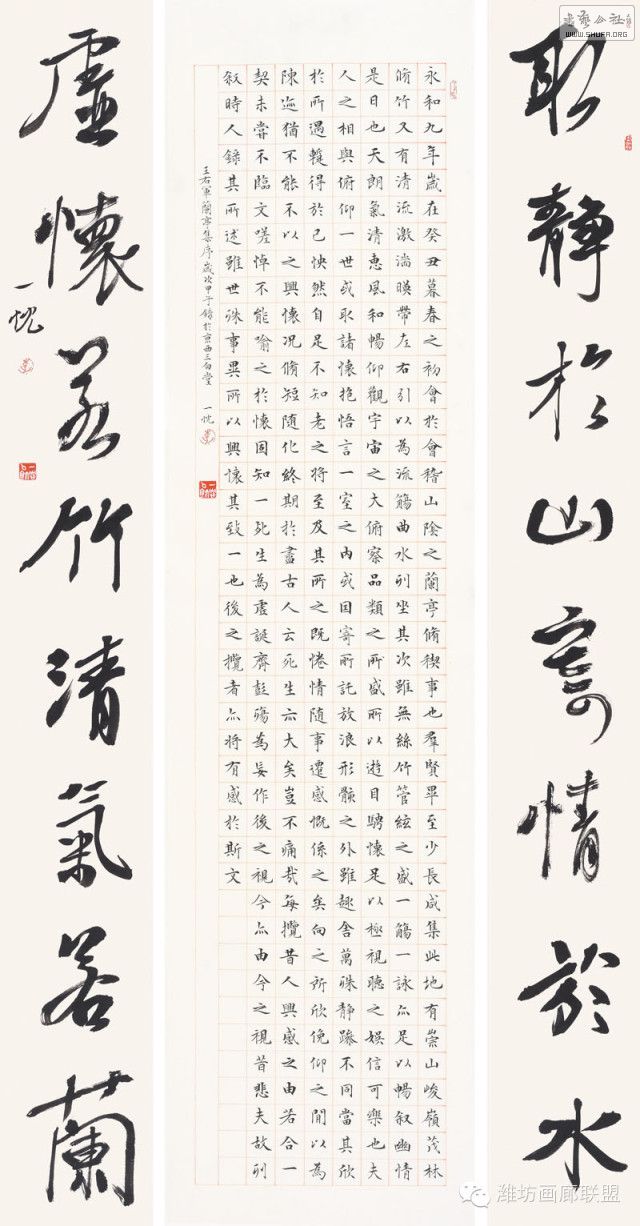 取靜於山寄情於水
永和九年歲在癸丑暮春之初會於會稽山陰之蘭亭脩稧事也羣賢畢至少長咸集此地有崇山峻嶺茂林
脩竹又有清流激湍暎帶左右引以為流觴曲水列坐其次雖無絲竹管絃之盛一觴一詠亦足以暢叙幽情
是日也天朗氣清惠風和暢仰觀宇宙之大俯察品類之所盛所以遊目騁懷足以極視聽之娛信可樂也夫
人之相與俯仰一世或取諸懷抱悟言一室之內或因寄所託放浪形骸之外雖趣舍萬殊靜躁不同當其欣
於所遇暫得於己怏然自足不知老之將至及其所之既惓情隨事遷感慨係之矣向之所欣俛仰之閒以為
陳迹猶不能不以之興懷況脩短隨化終期於盡古人云死生亦大矣豈不痛哉每攬昔人興感之由若合一
契未嘗不臨文嗟悼不能喻之於懷固知一死生為虛誕齊彭殤為妄作後之視今亦由今之視昔悲夫故列
叙時人錄其所述雖世殊事異所以興懷其致一也後之攬者亦將有感於斯文
王右軍蘭亭集序歲次甲午錄於京西三 堂 一忱
虛懷若竹清氣若蘭
一忱
書藝公社
WWW.SHUFA.ORG
潍坊画廊联盟